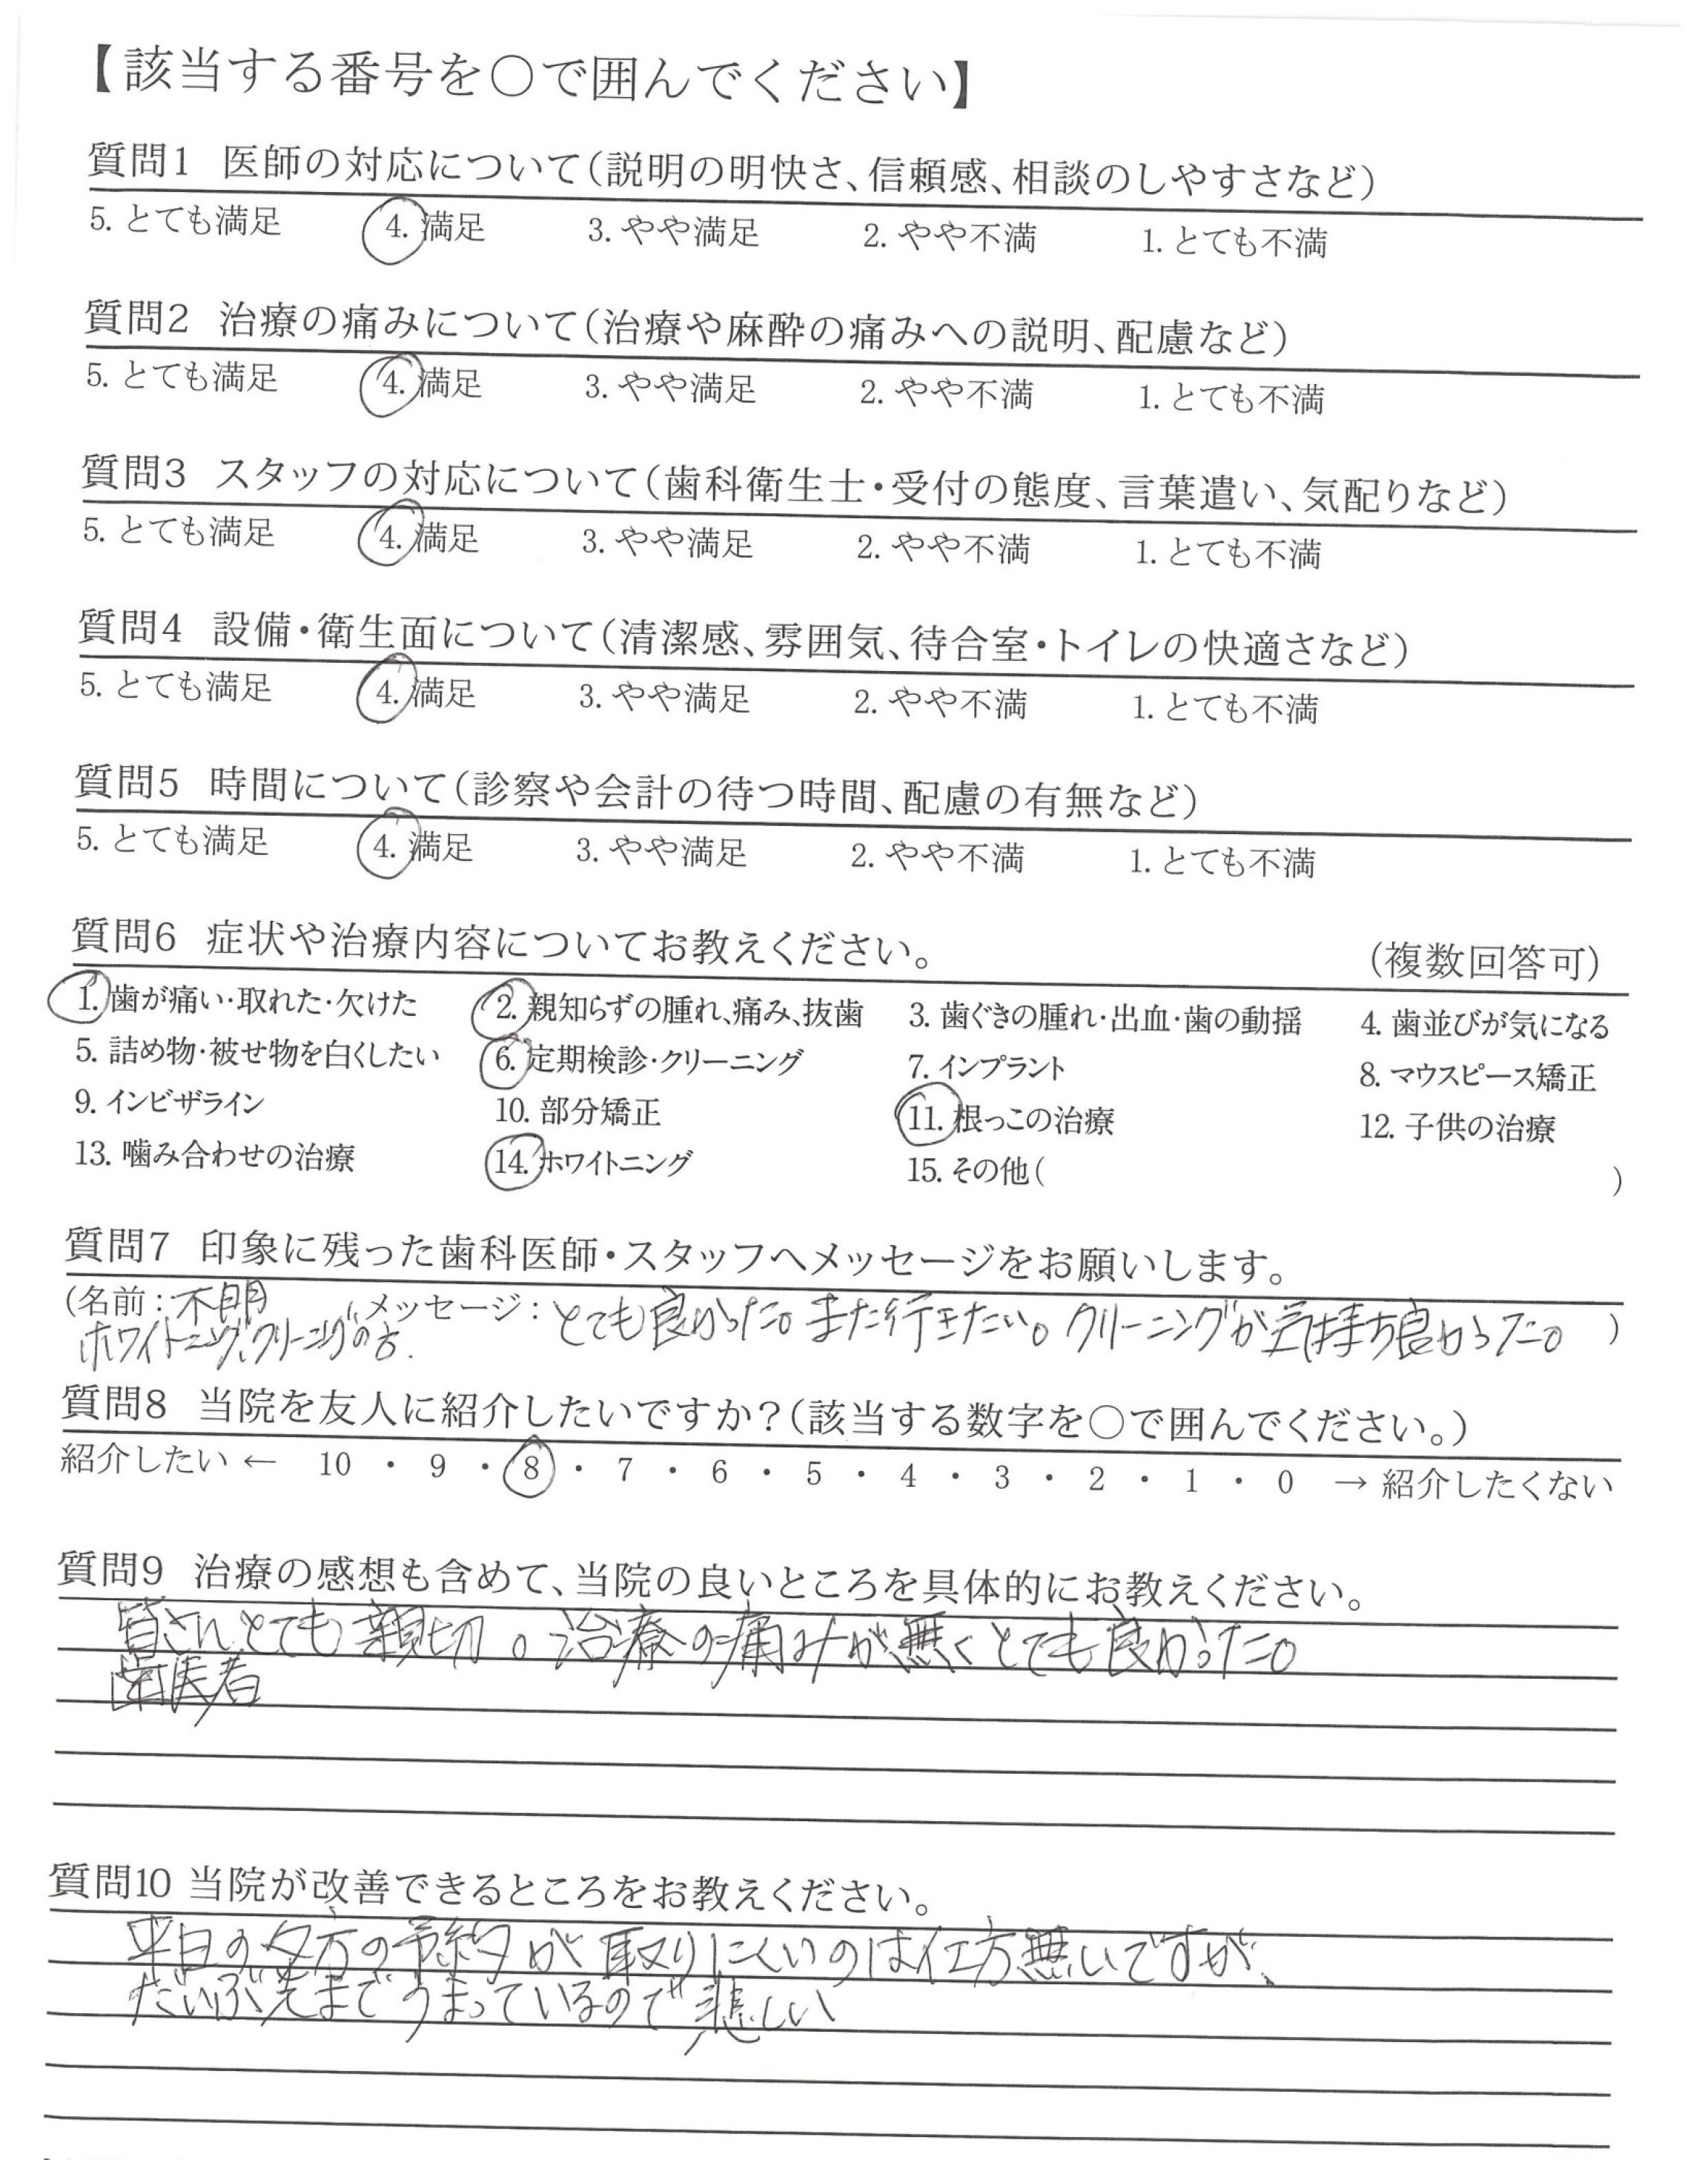 【該当する番号を○で囲んでください】
質問1 医師の対応について(説明の明快さ、信頼感、相談のしやすさなど)
5. とても満足 4. 満足 3. やや満足 2. やや不満 1. とても不満
質問2 治療の痛みについて(治療や麻酔の痛みへの説明、配慮など)
5. とても満足 4. 満足 3. やや満足 2. やや不満 1. とても不満
質問3 スタッフの対応について(歯科衛生士・受付の態度、言葉遣い、気配りなど)
5. とても満足 4. 満足 3. やや満足 2. やや不満 1. とても不満
質問4 設備・衛生面について(清潔感、雰囲気、待合室・トイレの快適さなど)
5. とても満足 4. 満足 3. やや満足 2. やや不満 1. とても不満
質問5 時間について(診察や会計の待つ時間、配慮の有無など)
5. とても満足 4. 満足 3. やや満足 2. やや不満 1. とても不満
質問6 症状や治療内容についてお教えください。 (複数回答可)
1. 歯が痛い・取れた・欠けた 2. 親知らずの腫れ、痛み、抜歯 3. 歯ぐきの腫れ・出血・歯の動揺 4. 歯並びが気になる
5. 詰め物・被せ物を白くしたい 6. 定期検診・クリーニング 7. インプラント 8. マウスピース矯正
9. インビザライン 10. 部分矯正 11. 根っこの治療 12. 子供の治療
13. 噛み合わせの治療 14. ホワイトニング 15. その他( )
質問7 印象に残った歯科医師・スタッフへメッセージをお願いします。
(名前:不明 メッセージ:とても良かった。また行きたい。クリーニングが気持ち良かった。)
ホワイトニング、クリーニングの方.
質問8 当院を友人に紹介したいですか?(該当する数字を○で囲んでください。)
紹介したい ← 10 ・ 9 ・ 8 ・ 7 ・ 6 ・ 5 ・ 4 ・ 3 ・ 2 ・ 1 ・ 0 → 紹介したくない
質問9 治療の感想も含めて、当院の良いところを具体的にお教えください。
皆さんとても親切。治療の痛みが無くとても良かった。
歯医者
質問10 当院が改善できるところをお教えください。
平日の夕方の予約が取りにくいのは仕方無いですが、
だいぶ先までうまっているので悲しい